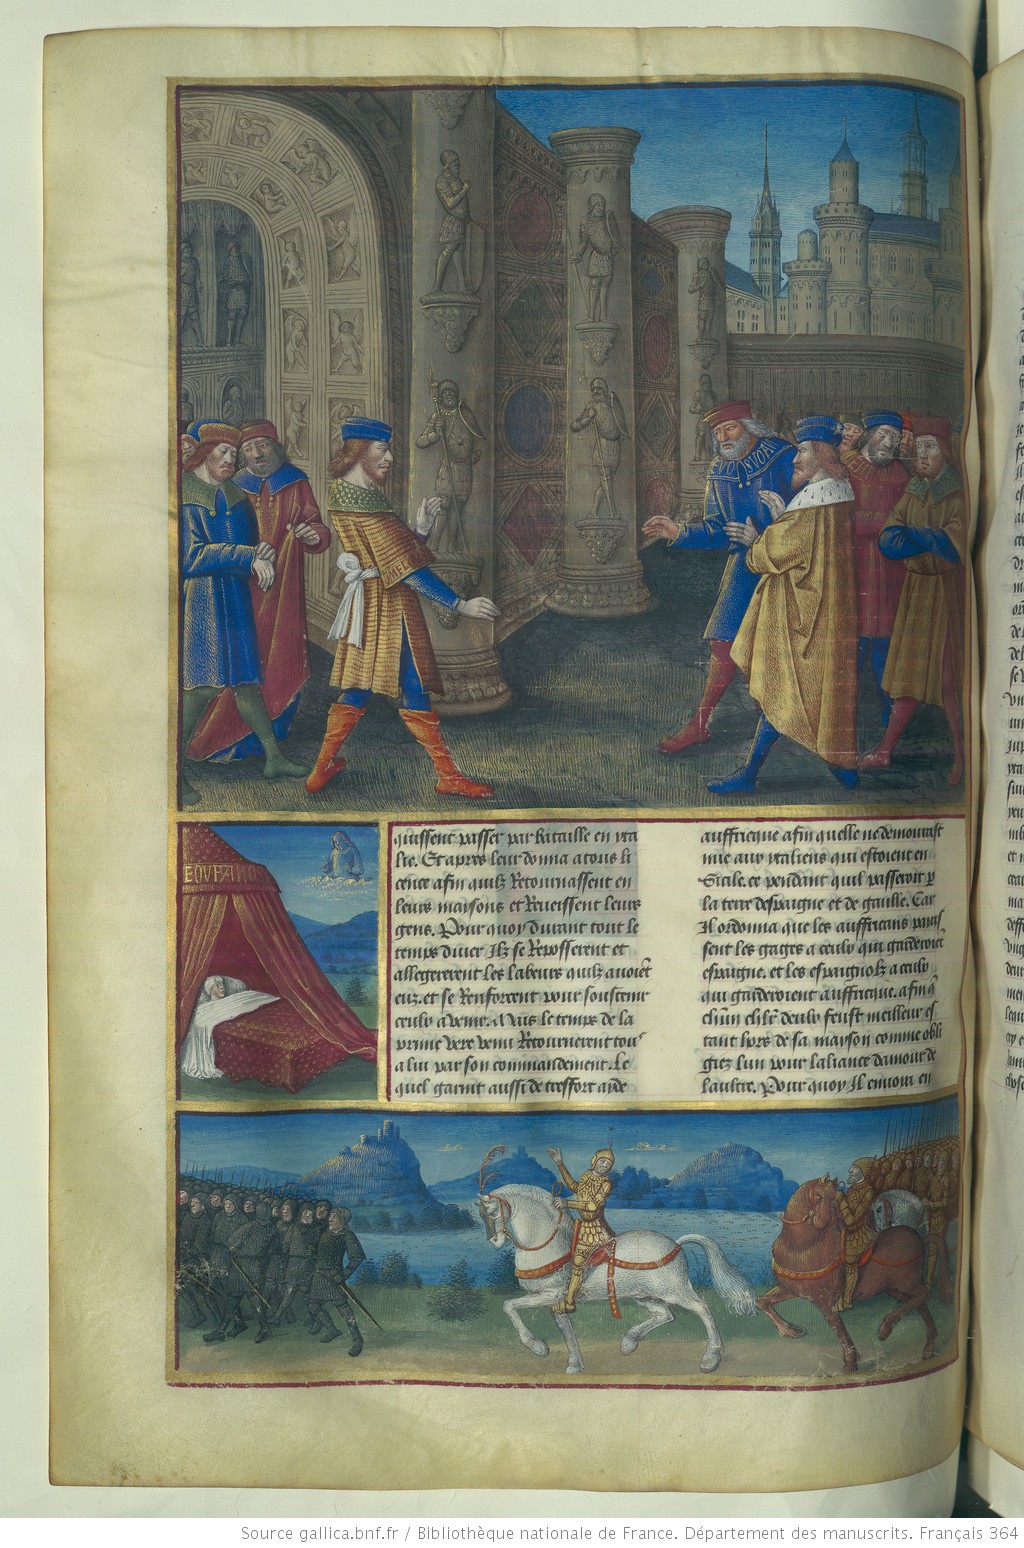 EQVERIMO
quissent passer par bataille en yta
lie. Et apres leur donna a tous li
cence afin quilz Retournassent en
leurs maysons et Reveissent leurs
gens. Pour quoy durant tout le
temps diver Ilz se Reposserent et
allegererent les labeurs quilz avoiẽt
euz. et se Renforcent pour soustenir
ceulx a venir. Mais le temps de la
prime vere venu Retournerent tous
a lui par son commandement. Le
quel garnit aussi de tressfort ayde
auffricque afin quelle ne demourast
nue aux ytaliens qui estoient en
Sicile. ce pendant quil passeroit p
la terre despaigne et de gaulle. Car
Il ordonna que les auffricans prais
sent les gages a ceulx qui garderoiẽt
espaigne. et les espaignolz a ceulx
qui garderoient auffricque. afin q̃
chũn chlr̃ deulx feust meilleur es
tant hors de sa mayson comme obli
giez lun pour laliance damour de
laultre. Pour quoy Il envoia en
Source gallica.bnf.fr / Bibliothèque nationale de France. Département des manuscrits. Français 364